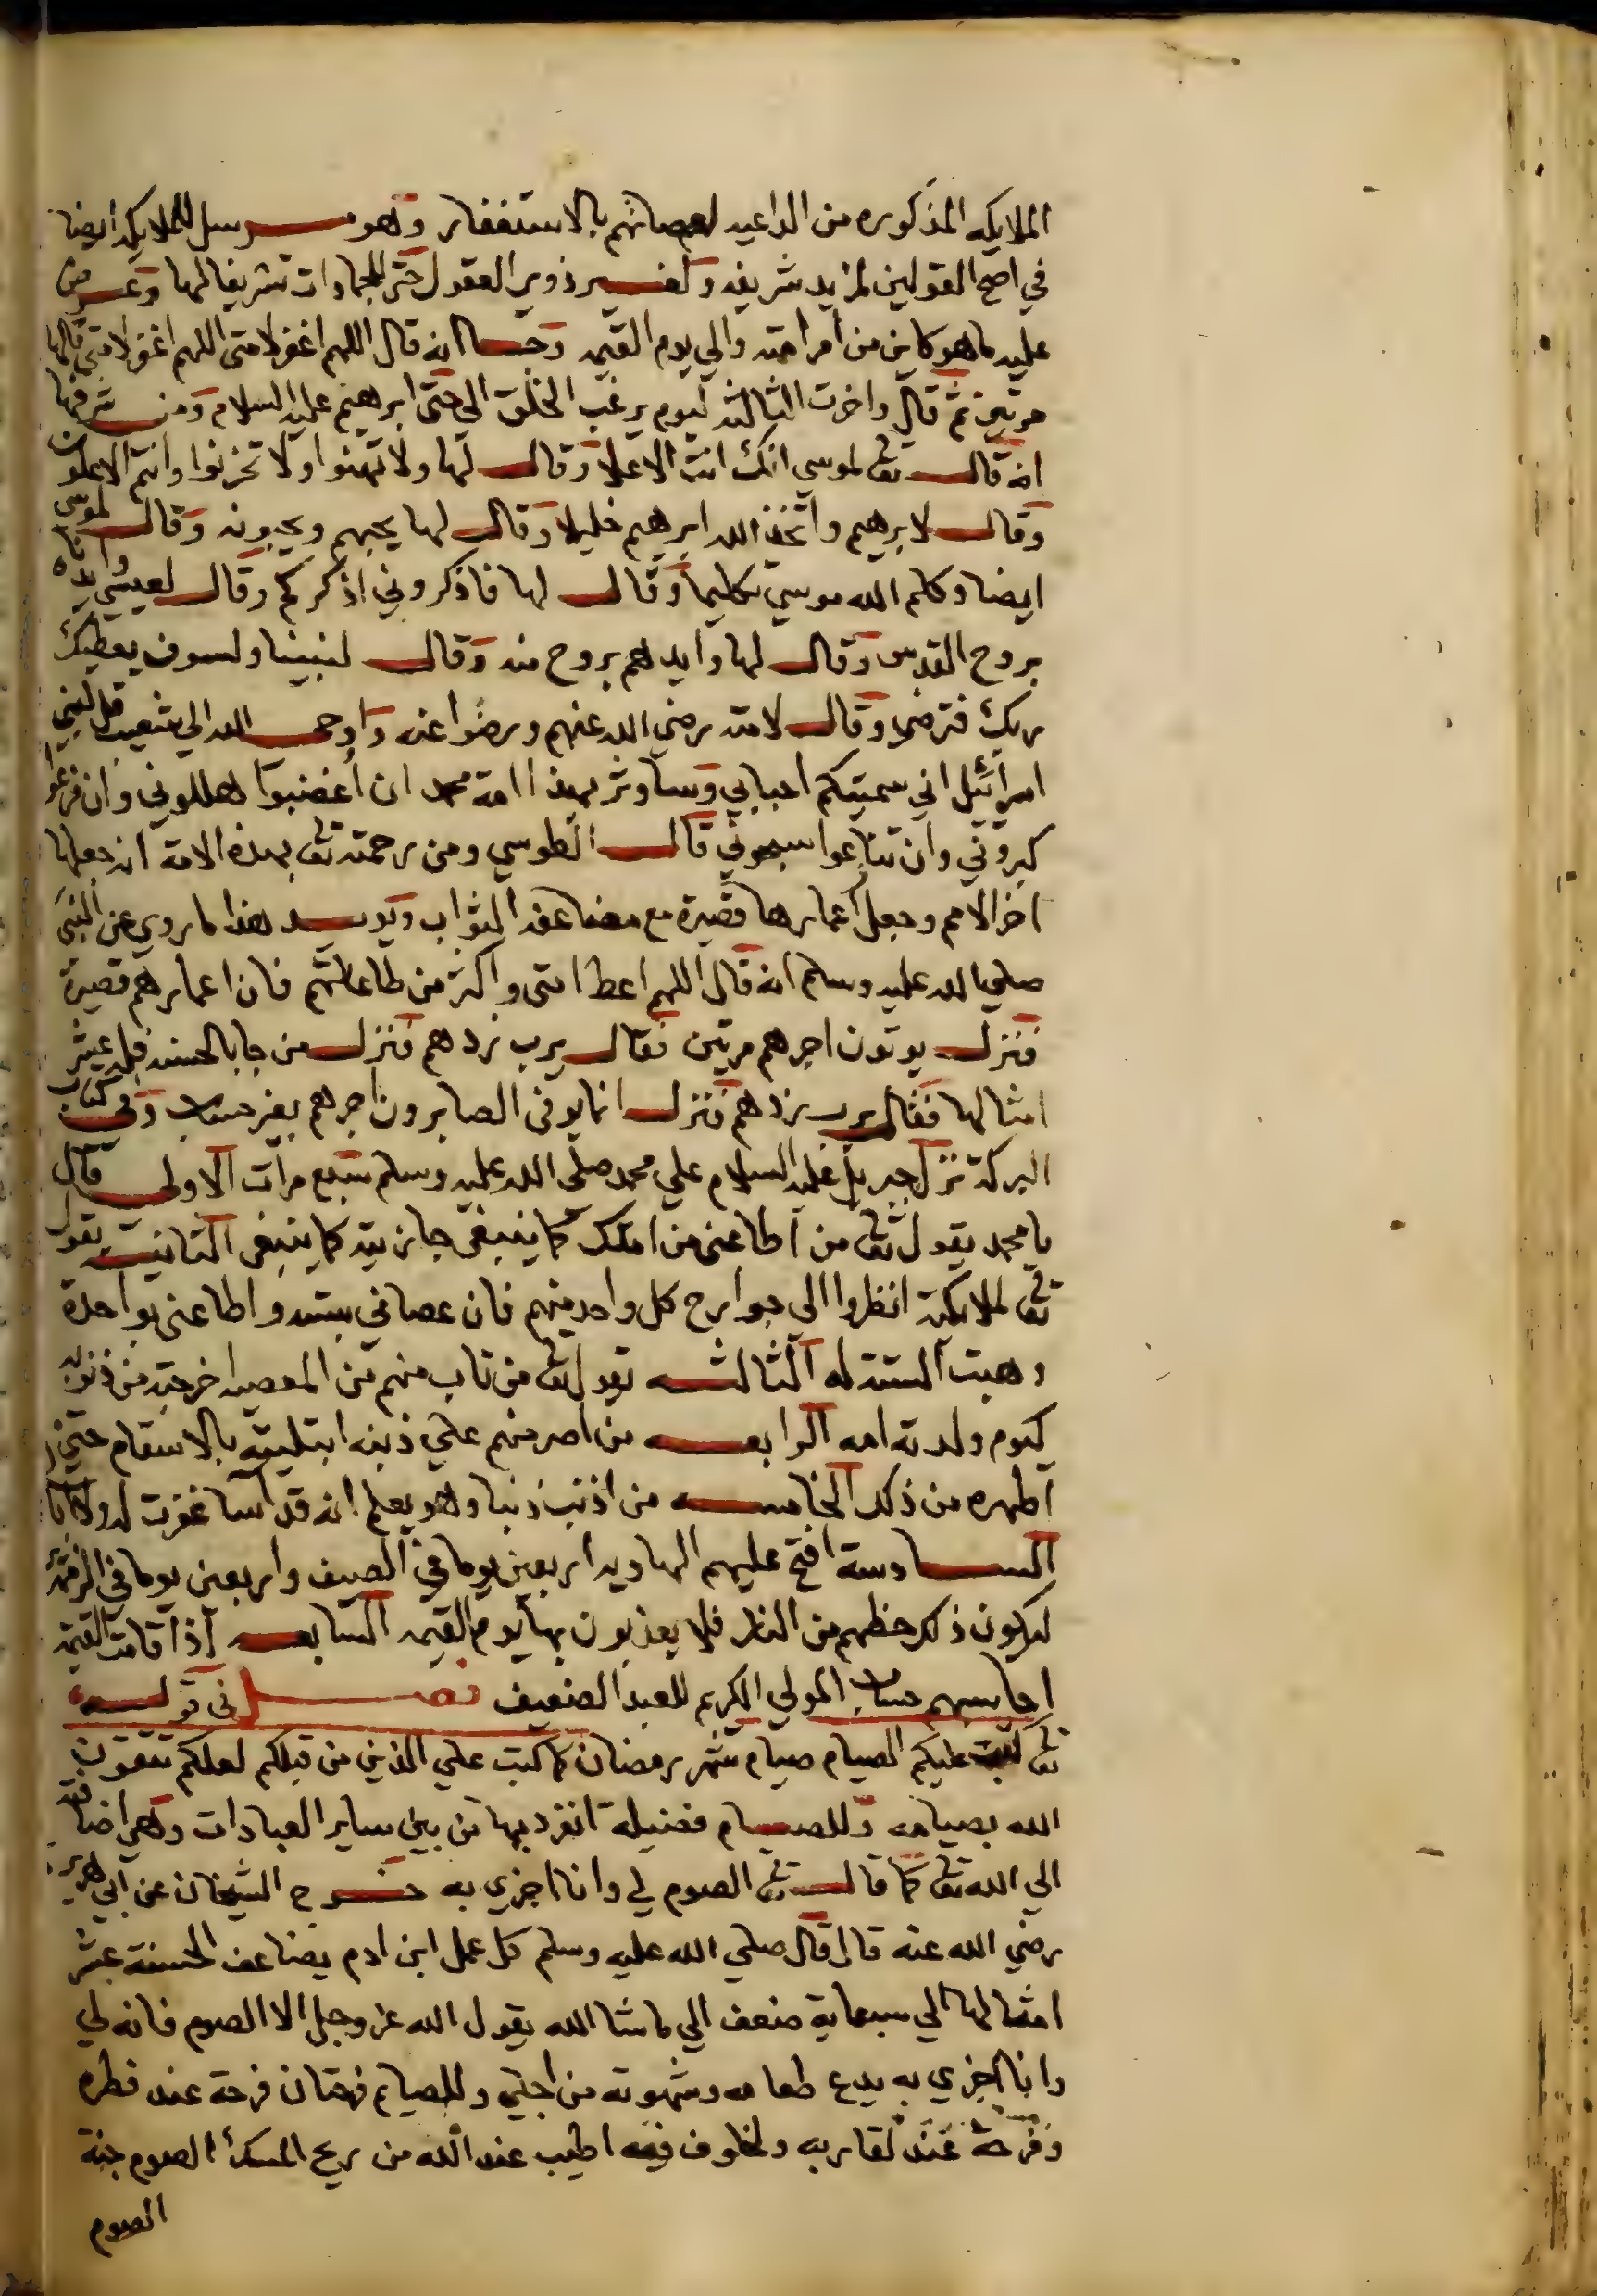 الملايكه المذكوره من الداعيه لعصاتهم بالاستغفار وهو مرسل للملايكه ايضا
في اصح القولين لمزيد شرفه ولغير ذوي العقول حتى للجمادات تشريفا لها وعرض
عليه ما هو كاين من امر امته والي يوم القيمه وجا انه قال اللهم اغفر لامتى اللهم اغفر لامتى قالها
مرتين ثم قال واخرت الثالثه ليوم يرغب الخلق الى حتى ابرهيم عليه السلام ومن شرفها
انه قال تعا لموسي انك انت الاعلا وقال لها ولا تهنوا ولا تحزنوا وانتم الاعلون
وقال لابرهيم واتخذ الله ابرهيم خليلا وقال لها يحبهم ويحبونه وقال لموسى
ايضا وكلم الله موسي تكليما وقال لها فاذكروني اذكركم وقال لعيسي وايدناه
بروح القدس وقال لها وايدهم بروح منه وقال لنبينا ولسوف يعطيك
ربك فترضي وقال لامته رضي الله عنهم ورضوا عنه واوحى الله الي شعيب قل لبني
اسرائيل اني سميتكم احبابي وساوثر بهذا امة محمد ان اغضبوا هللوني وان فزعوا
كبروني وان تنازعوا سبحوني قال الطوسي ومن رحمته تعا بهذه الامة انه جعلها
اخر الامم وجعل اعمارها قصيرة مع مضاعفة الثواب ويويد هذا ما روي عن النبى
صلي الله عليه وسلم انه قال اللهم اعط امتى واكثر من طاعاتهم فان اعمارهم قصيرة
فنزل يوتون اجرهم مرتين فقال يرب زدهم فنزل من جا بالحسنه فله عشر
امثالها فقال يرب زدهم فنزل انما يوفى الصابرون اجرهم بغير حساب وفى كتاب
البركة نزل جبريل عليه السلام علي محمد صلى الله عليه وسلم سبع مرات الاولى قال
يا محمد يقول تعا من اطاعنى من امتك كما ينبغى جازيته كما ينبغى الثانية يقول
تعا للملايكة انظروا الى جوارح كل واحد منهم فان عصانى بسته واطاعنى بواحدة
وهبت السته له الثالثه يقول تعا من تاب منهم من المعصيه اخرجته من ذنوبه
كيوم ولدته امه الرابعه من اصر منهم علي ذنبه ابتليته بالاسقام حتى
اطهره من ذلك الخامسه من اذنب ذنبا وهو يعلم انه قد اسا غفرت له ولا ابا
السادسة افتح عليهم الهاويه اربعين يوما في الصيف واربعين يوما في الشتا
ليكون ذلك حظهم من النار فلا يعذبون بها يوم القيمه السابعه اذا قامت القيمة
احاسبهم حساب المولي الكريم للعبد الضعيف فصل في قوله
تعا كتب عليكم الصيام صيام شهر رمضان كما كتب علي الذين من قبلكم لعلكم تتقون
الله بصيامه وللصيام فضيلة انفرد بها من بين ساير العبادات وهي اضافته
الي الله تعا كما قال تعا الصوم لي وانا اجزي به خرج الشيخان عن ابي هريرة
رضي الله عنه قال قال صلي الله عليه وسلم كل عمل ابن ادم يضاعف الحسنة بعشر
امثالها الي سبعماية ضعف الي ما شا الله يقول الله عز وجل الا الصوم فانه لي
وانا اجزي به يدع طعامه وشهوته من اجلي وللصايم فرحتان فرحة عند فطره
وفرحة عند لقا ربه ولخلوف فيه اطيب عند الله من ريح المسك الصوم جنة
الصوم